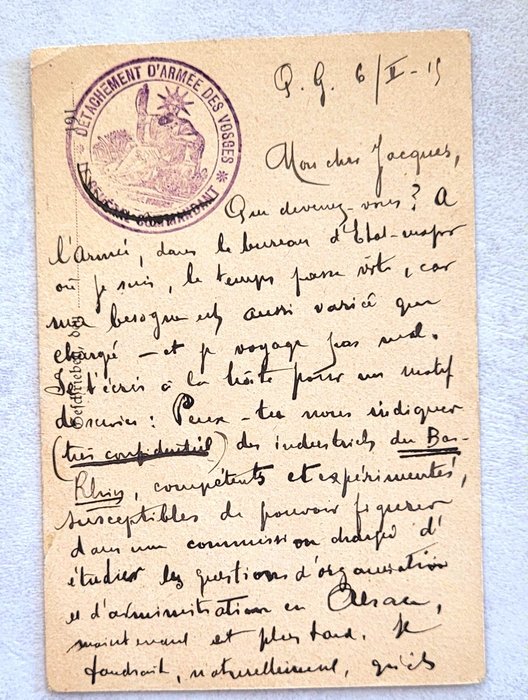 DÉTACHEMENT D'ARMÉE DES VOSGES
COMMANDANT
191
Geschrieben, den
Q. G. 6/II-15
Mon cher Jacques,
Que devenez-vous? A
l'Armée, dans le bureau d'Etat-major
où je suis, le temps passe vite, car
ma besogne est aussi variée que
chargée - et je voyage pas mal.
Je t'écris à la hâte pour un motif
de service: Peux-tu nous indiquer
(très confidentiel) des industriels du Bas-
Rhin, compétents et expérimentés,
susceptibles de pouvoir figurer
dans une commission chargée d'
étudier les questions d'organisation
et d'administration en Alsace,
maintenant et plus tard. Il
faudrait, naturellement, qu'ils